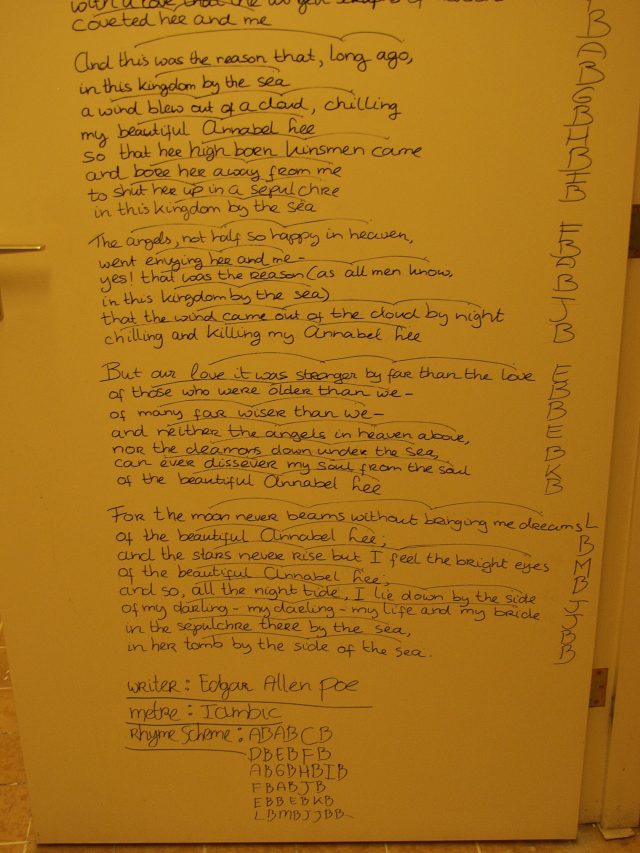 with a love that the winged seraphs of heaven
coveted her and me
And this was the reason that, long ago,
in this kingdom by the sea
a wind blew out of a cloud, chilling
my beautiful Annabel Lee
so that her high born kinsmen came
and bore her away from me
to shut her up in a sepulchre
in this kingdom by the sea
The angels, not half so happy in heaven,
went envying her and me -
yes! that was the reason (as all men know,
in this kingdom by the sea)
that the wind came out of the cloud by night
chilling and killing my Annabel Lee
But our love it was stronger by far than the love
of those who were older than we -
of many far wiser than we -
and neither the angels in heaven above,
nor the deamons down under the sea,
can ever dissever my soul from the soul
of the beautiful Annabel Lee
For the moon never beams without bringing me dreams
of the beautiful Annabel Lee;
and the stars never rise but I feel the bright eyes
of the beautiful Annabel Lee;
and so, all the night tide, I lie down by the side
of my darling - my darling - my life and my bride
in the sepulchre there by the sea,
in her tomb by the side of the sea.
B
A
B
G
B
H
B
I
B
F
B
A
B
J
B
E
B
B
E
B
K
B
L
B
M
B
J
J
B
B
writer: Edgar Allen Poe
metre: Iambic
Rhyme Scheme: ABABCB
DBEBFB
ABGBHBIB
FBABJB
EBBEBKB
LBMBJJBB